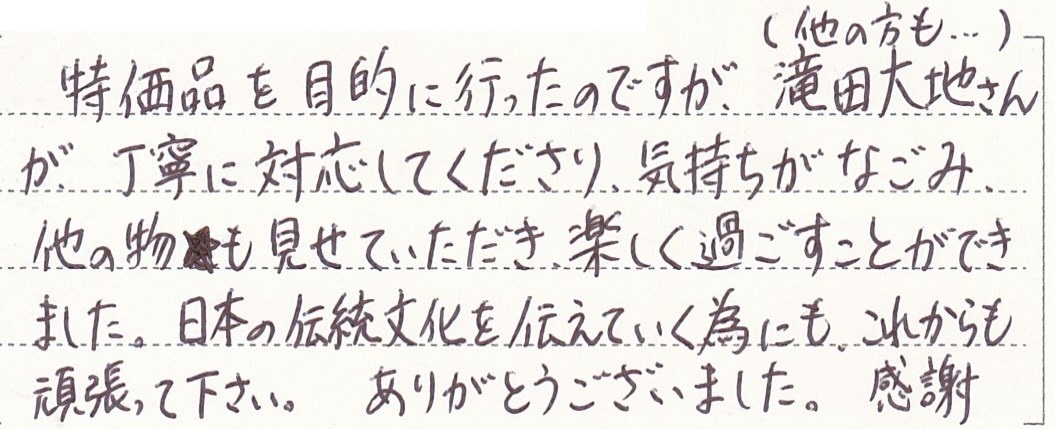 (他の方も…)
特価品を目的に行ったのですが、滝田大地さん
が、丁寧に対応してくださり、気持ちがなごみ、
他の物も見せていただき、楽しく過ごすことができ
ました。日本の伝統文化を伝えていく為にも、これからも
頑張って下さい。 ありがとうございました。 感謝